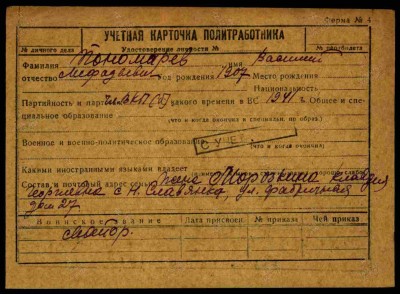 Форма № 4
УЧЕТНАЯ КАРТОЧКА ПОЛИТРАБОТНИКА
№ личного дела Удостоверение личности № № партбилета
Фамилия Пономарев имя Василий
отчество год рождения 1907 Место рождения
Национальность
Партийность и парт ВКП(б) какого времени в ВС 1941 г. Общее и спе-
циальное образование
(что и когда окончил и специальн. по образ.)
С УЧЕТА
Военное и военно-политическое образование
(что и когда окончил)
Какими иностранными языками владеет
Состав и почтовый адрес семьи жена Морозкина Клавдия
Георгиевна с Н. Славянка ул. Фабричная
дом 27
Воинское звание Дата присвоен. № приказа Чей приказ
майор